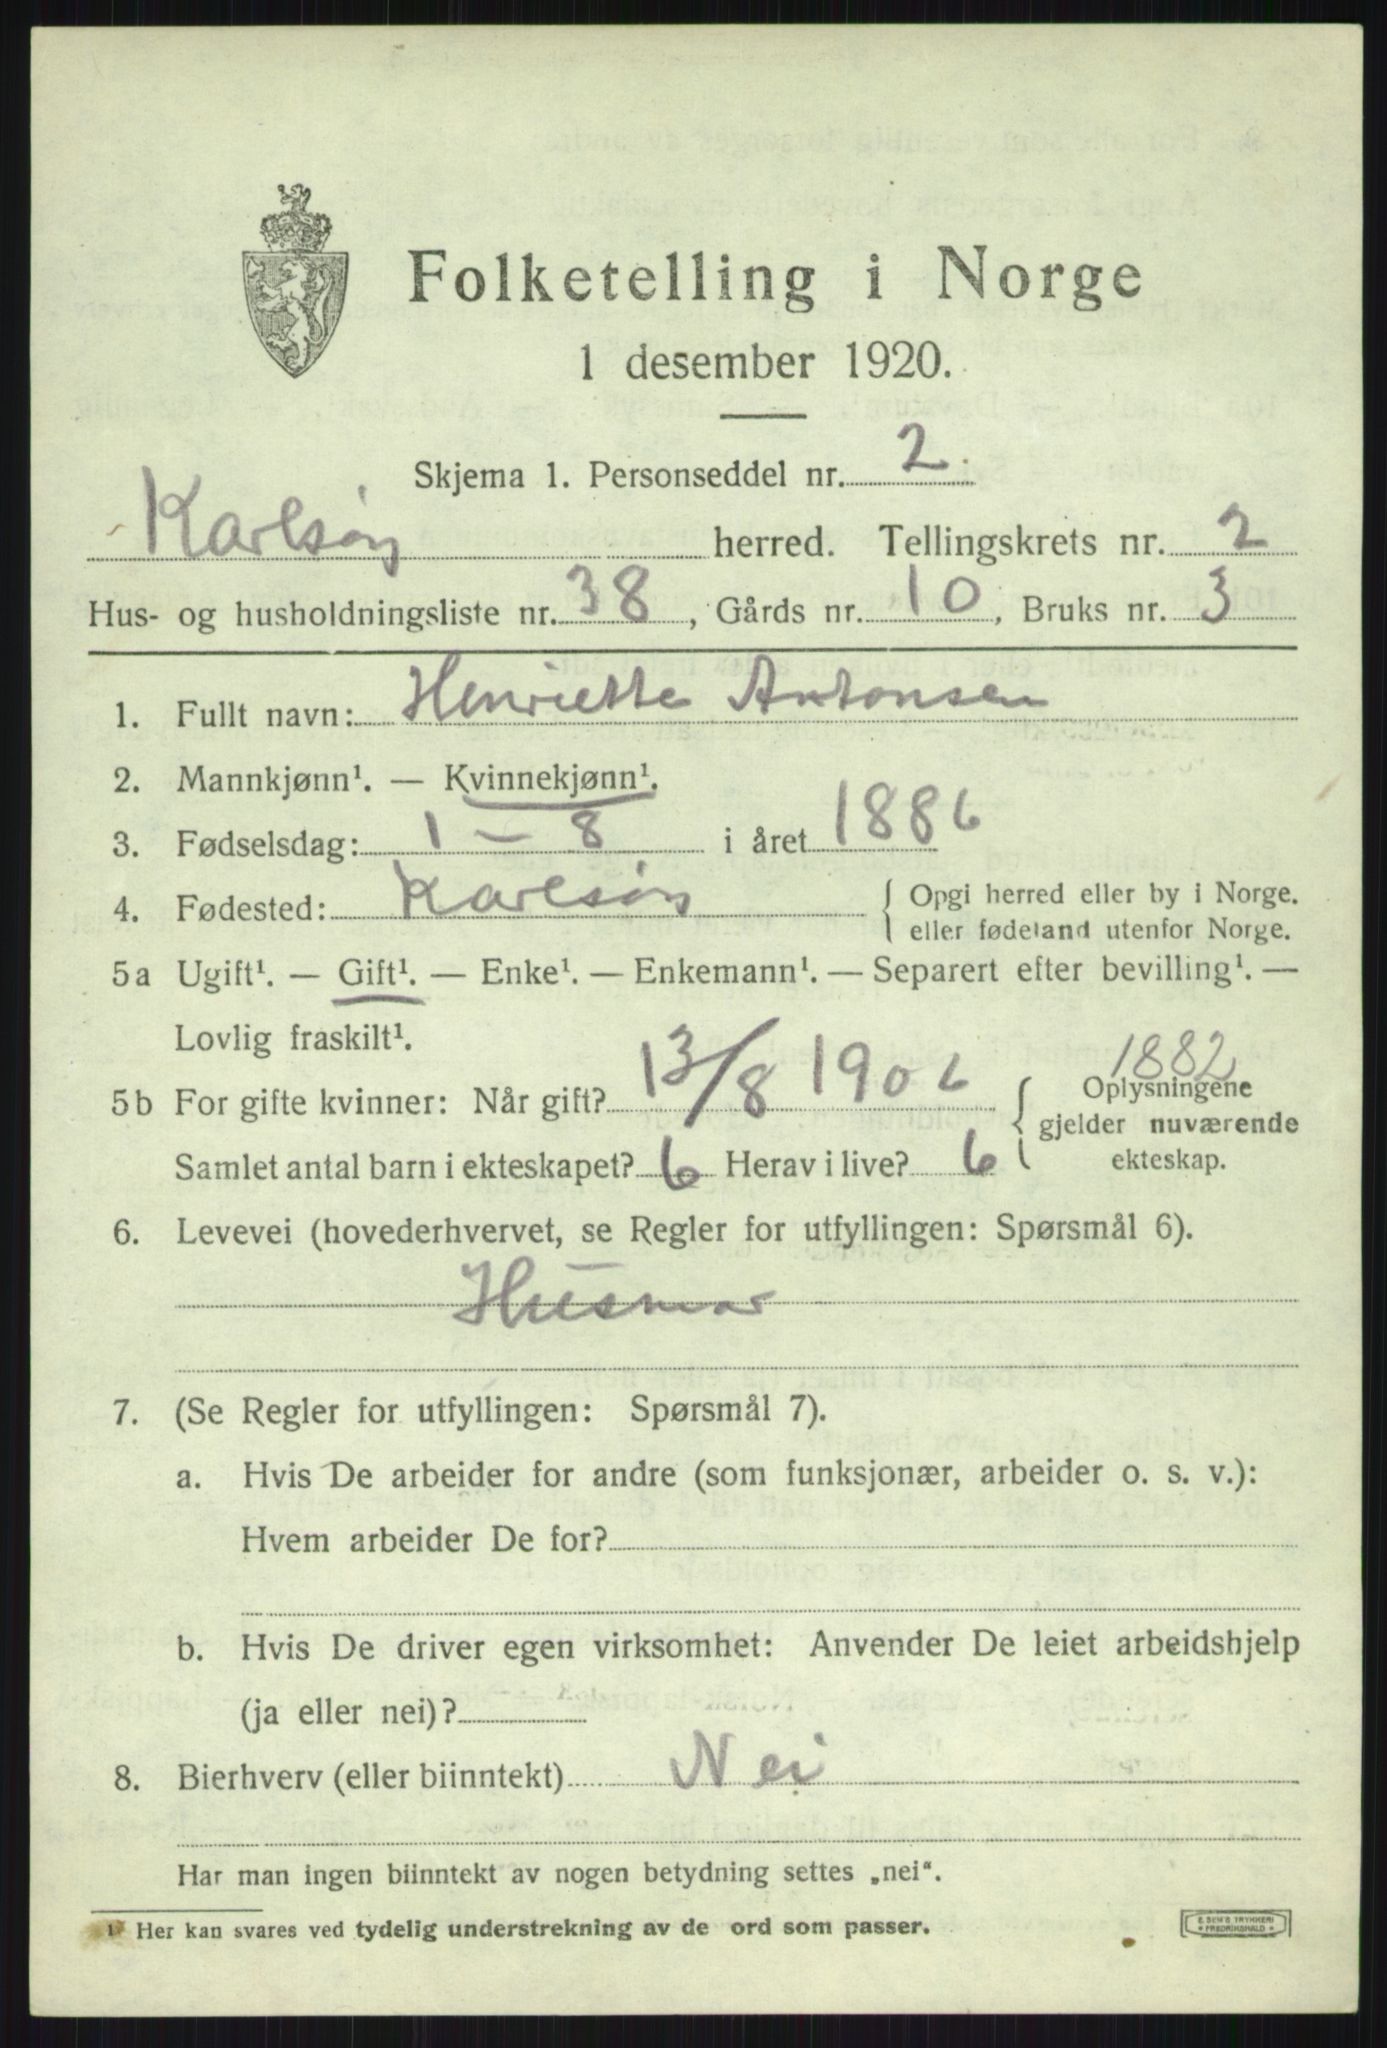 Folketelling i Norge
1 desember 1920.
Skjema 1. Personseddel nr. 2
Karlsøy herred. Tellingskrets nr. 2
Hus- og husholdningsliste nr. 38, Gårds nr. 10, Bruks nr. 3
1. Fullt navn: Henriette Antonsen
2. Mannkjønn¹. — Kvinnekjønn¹.
3. Fødselsdag: 1 – 8 i året 1886
4. Fødested: Karlsøy { Opgi herred eller by i Norge.
eller fødeland utenfor Norge.
5a Ugift¹. — Gift¹. — Enke¹. — Enkemann¹. — Separert efter bevilling¹. —
Lovlig fraskilt¹.
1882
5b For gifte kvinner: Når gift? 13/8 1906 { Oplysningene
gjelder nuværende
Samlet antal barn i ekteskapet? 6 Herav i live? 6 ekteskap.
6. Levevei (hovederhvervet, se Regler for utfyllingen: Spørsmål 6).
Husmor
7. (Se Regler for utfyllingen: Spørsmål 7).
a. Hvis De arbeider for andre (som funksjonær, arbeider o. s. v.):
Hvem arbeider De for?
b. Hvis De driver egen virksomhet: Anvender De leiet arbeidshjelp
(ja eller nei)?
8. Bierhverv (eller biinntekt) Nei
Har man ingen biinntekt av nogen betydning settes „nei“.
¹) Her kan svares ved tydelig understrekning av de ord som passer.
E. SEM'S TRYKKERI
• FREDRIKSHALD •